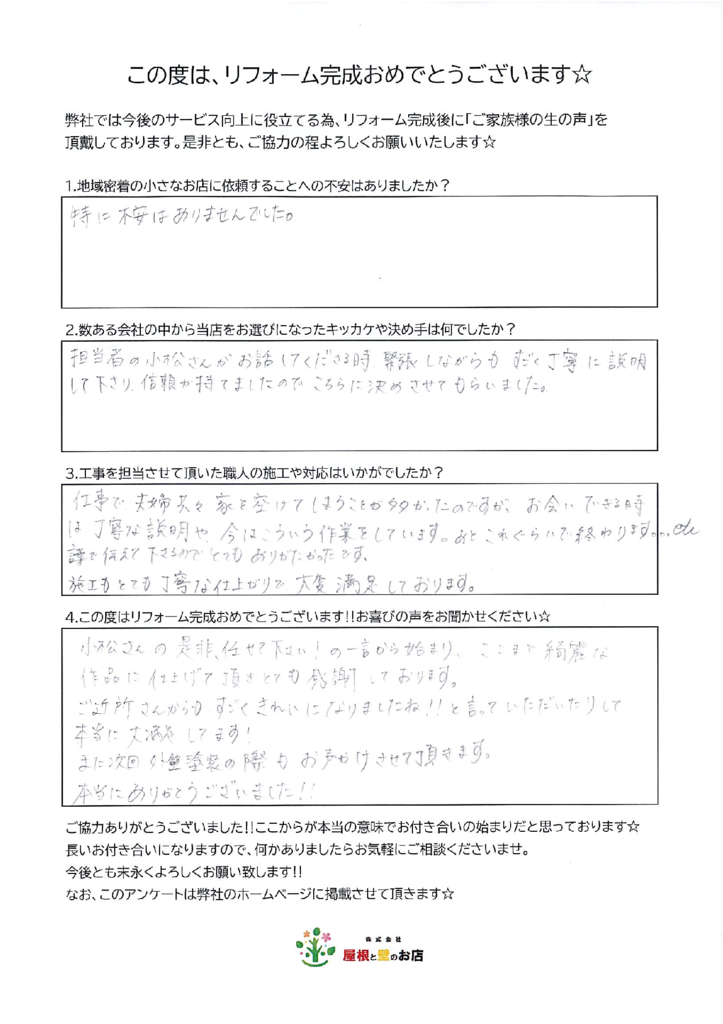 この度は、リフォーム完成おめでとうございます☆
弊社では今後のサービス向上に役立てる為、リフォーム完成後に「ご家族様の生の声」を
頂戴しております。是非とも、ご協力の程よろしくお願いいたします☆
1.地域密着の小さなお店に依頼することへの不安はありましたか？
特に不安はありませんでした。
2.数ある会社の中から当店をお選びになったキッカケや決め手は何でしたか？
担当者の小松さんがお話してくださる時、緊張しながらもすごく丁寧に説明
して下さり、信頼が持てましたのでこちらに決めさせてもらいました。
3.工事を担当させて頂いた職人の施工や対応はいかがでしたか？
仕事で夫婦共々家を空けてしまうことが多かったのですが、お会いできる時
は丁寧な説明や今はこういう作業をしています。あとこれぐらいで終わります...etc
で伝えて下さるのでとてもありがたかったです、
施工もとても丁寧な仕上がりで大変満足しております。
4.この度はリフォーム完成おめでとうございます!!お喜びの声をお聞かせください☆
小松さんの是非、任せて下さい!の一言から始まり、ここまで綺麗な
作品に仕上げて頂きとても感謝しております。
ご近所さんからもすごくきれいになりましたね!!と言っていただいたりして
本当に大満足してます!
また次回外壁塗装の際もお声かけさせて頂きます。
本当にありがとうございました!!
ご協力ありがとうございました!!ここからが本当の意味でお付き合いの始まりだと思っております☆
長いお付き合いになりますので、何かありましたらお気軽にご相談くださいませ。
今後とも末永くよろしくお願い致します!!
なお、このアンケートは弊社のホームページに掲載させて頂きます☆
株式会社
屋根と壁のお店